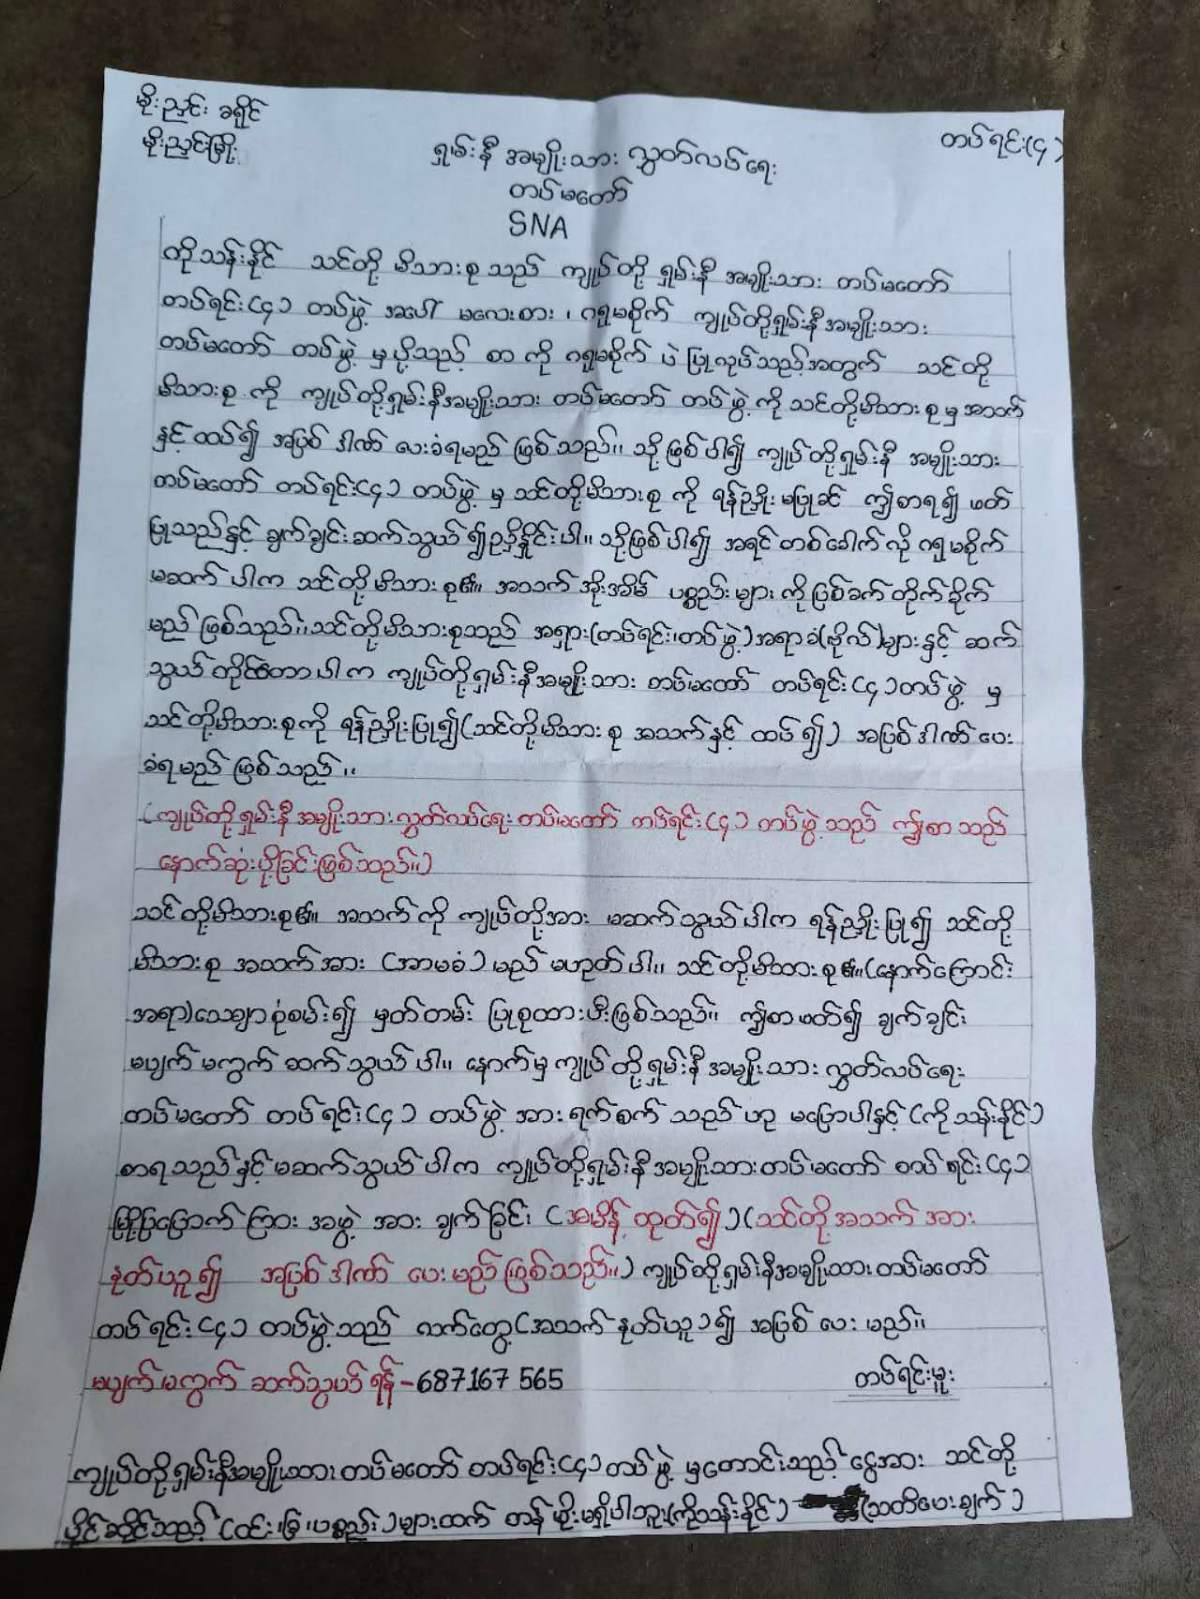 မိုးညှင်း ခရိုင်
မိုးညှင်းမြို့
တပ်ရင်း(၄)
ရှမ်းနီ အမျိုးသား လွှတ်လပ်ရေး
တပ်မတော်
SNA
ကိုသန်းနိုင် သင်တို့ မိသားစု သည် ကျုပ်တို့ ရှမ်းနီ အမျိုးသား တပ်မတော်
တပ်ရင်း(၄) တပ်ဖွဲ့ အပေါ် မလေးစား ၊ ဂရုမစိုက် ကျုပ်တို့ရှမ်းနီအမျိုးသား
တပ်မတော် တပ်ဖွဲ့ မှ ပို့သည့် စာ ကို ဂရုမစိုက် ပဲ ပြုလုပ်သည့်အတွက် သင်တို့
မိသားစု ကို ကျုပ်တို့ရှမ်းနီအမျိုးသား တပ်မတော် တပ်ဖွဲ့ ကို သင်တို့မိသားစု မှ အသက်
နှင့် ထပ်၍ အပြစ် ဒါဏ် ပေးခံရမည် ဖြစ်သည်။ သို့ဖြစ်ပါ၍ ကျုပ်တို့ရှမ်းနီ အမျိုးသား
တပ်မတော် တပ်ရင်း(၄) တပ်ဖွဲ့ မှ သင်တို့မိသားစု ကို ရန်ညှိုး မပြုခင် ဤစာရ၍ ဖတ်
ပြုသည်နှင့် ချက်ချင်း ဆက်သွယ်၍ညှိနှိုင်းပါ။ သို့ဖြစ်ပါ၍ အရင်တစ်ခေါက်လို ဂရုမစိုက်
မဆက်ပါက သင်တို့မိသားစု၏။ အသက် အိုးအိမ် ပစ္စည်းများ ကို ပြစ်ခက်တိုက်ခိုက်
မည် ဖြစ်သည်။ သင်တို့မိသားစုသည် အရှား(တပ်ရင်း၊တပ်ဖွဲ့)အရာခံ(ဗိုလ်)များနှင့် ဆက်
သွယ်တိုင်တောပါက ကျုပ်တို့ရှမ်းနီအမျိုးသား တပ်မတော် တပ်ရင်း(၄)တပ်ဖွဲ့ မှ
သင်တို့မိသားစုကို ရန်ညှိုးပြု၍(သင်တို့မိသားစု အသက်နှင့် ထပ်၍) အပြစ်ဒါဏ်ပေး
ခံရမည် ဖြစ်သည်။
(ကျုပ်တို့ရှမ်းနီအမျိုးသားလွှတ်လပ်ရေး တပ်မတော် တပ်ရင်း(၄) တပ်ဖွဲ့သည် ဤစာသည်
နောက်ဆုံးပို့ခြင်းဖြစ်သည်။)
သင်တို့မိသားစု၏။ အသက်ကို ကျုပ်တို့အား မဆက်သွယ်ပါက ရန်ညှိုးပြု၍ သင်တို့
မိသားစု အသက်အား (အာမခံ) မည် မဟုတ်ပါ။ သင်တို့မိသားစု၏။(နောက်ကြောင်း
အရာ)သေချာစုံစမ်း၍ မှတ်တမ်း ပြုစုထားပီးဖြစ်သည်။ ဤစာဖတ်၍ ချက်ချင်း
မပျက်မကွက် ဆက်သွယ်ပါ။ နောက်မှ ကျုပ်တို့ရှမ်းနီအမျိုးသား လွှတ်လပ်ရေး
တပ်မတော် တပ်ရင်း(၄) တပ်ဖွဲ့ အား ရက်စက် သည် ဟု မပြောပါနှင့် (ကိုသန်းနိုင်)
စာရသည်နှင့် မဆက်သွယ်ပါက ကျုပ်တို့ရှမ်းနီအမျိုးသားတပ်မတော် စာပ်ရင်း(၄)
မြို့ပြပြောက်ကြား အဖွဲ့ အား ချက်ခြင်း (အမိန့် ထုတ်၍) (သင်တို့အသက်အား
နုတ်ယူ၍ အပြစ်ဒါဏ် ပေးမည်ဖြစ်သည်။) ကျုပ်တို့ရှမ်းနီအမျိုးသားတပ်မတော်
တပ်ရင်း(၄) တပ်ဖွဲ့သည် လက်တွေ့(အသက်နုတ်ယူ)၍ အပြစ် ပေးမည်။
မပျက်မကွက် ဆက်သွယ်ရန် - 687167 565
တပ်ရင်းမှူး
ကျုပ်တို့ရှမ်းနီအမျိုးသားတပ်မတော် တပ်ရင်း(၄)တပ်ဖွဲ့ မှတောင်းသည့် ငွေအား သင်တို့
ပိုင်ဆိုင်သည့် (ဝင်း၊ခြံ၊ပစ္စည်း)များထက် တန်ဖိုးမရှိပါဘူး(ကိုသန်းနိုင်) (သတိပေးချက်)